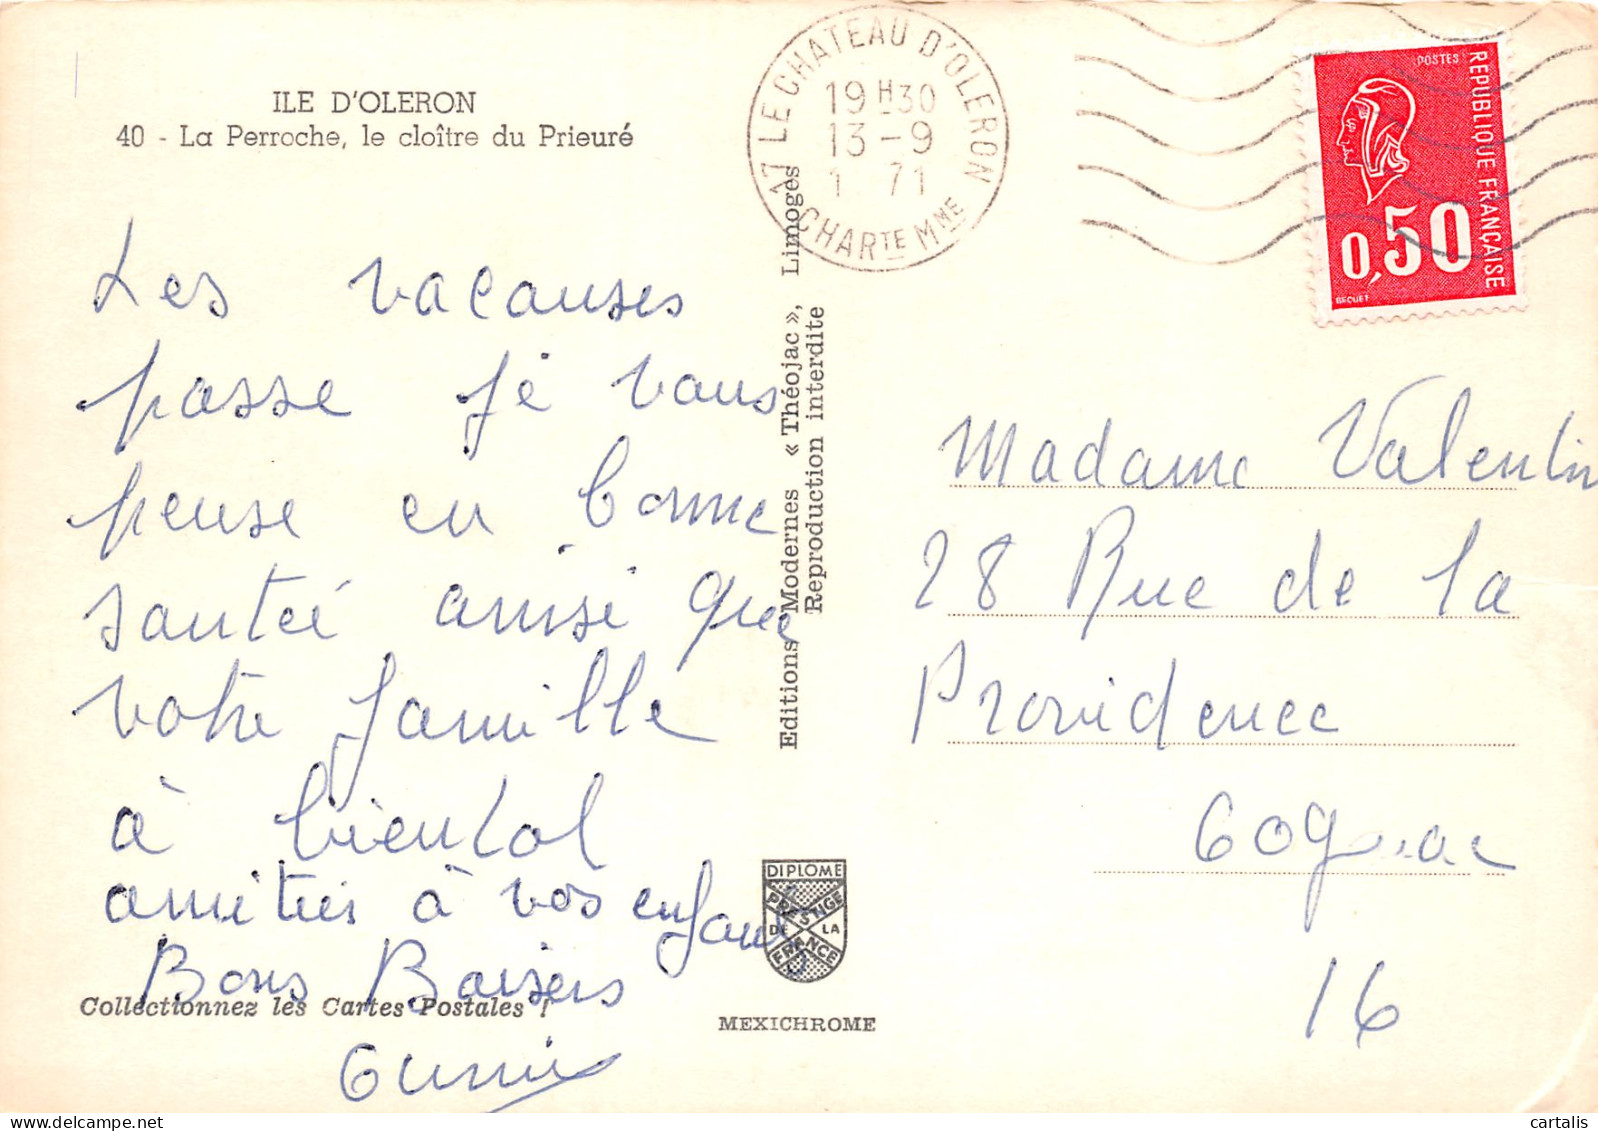 ILE D'OLERON
40 - La Perroche, le cloître du Prieuré
Les vacanses
passe je vous
pense en bonne
santéé ainsi que
votre famille
à bientot
amitiés à vos enfants
Bons Baisers
Collectionnez les Cartes Postales !
Editions Modernes « Théojac », Limoges
Reproduction interdite
DIPLOME
PRESTIGE
DE LA
FRANCE
MEXICHROME
17 LE CHATEAU D'OLERON
19 H30
13 - 9
1 71
CHARTE MME
POSTES
REPUBLIQUE FRANÇAISE
0,50
BEQUET
Madame Valentin
28 Rue de la
Providence
Cognac
16
cartalis
delcampe.net